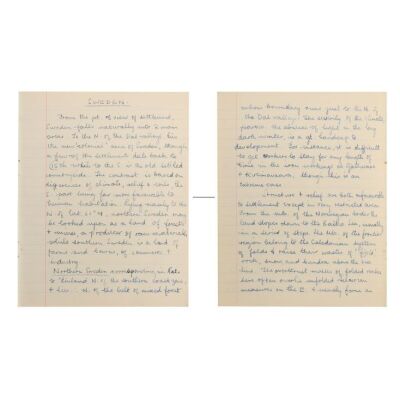 SWEDEN.
From the pt. of view of settlement,
Sweden falls naturally into 2 main
areas. To the N. of the Dal valley lies
the new 'colonial' area of Sweden, though
a few of the settlements date back to
, while to the S. is the old settled
countryside. The contrast is based on
differences of climate, relief & soils, the
S. part being far more favourable to
human habitation lying mainly to the
N. of Lat. 61° N. northern Sweden may
be looked upon as a land of forests
& mines, a producer of raw materials,
while southern Sweden is a land of
farms and towns, of commerce &
industry.
Northern Sweden corresponding in Lat.
to Finland N. of the southern coast
& lies N. of the belt of mixed forest
whose boundary runs just to the N. of
the Dal valley. The severity of the climate
the absence of light in the long
dark winter, is a gt. handicap to
development. For instance, it is difficult
to get workers to stay for any length of
time in the iron workings at Gällivare
& Kirunavaara, though this is an
extreme case.
Structure & relief are both unfavourable
to settlement except in very restricted areas.
From the mts. of the Norwegian border the
land slopes down to the Baltic Sea, usually
in a series of steps. The mts. of the frontier
region belong to the Caledonian system
of folds & raise their wastes of
rock, snow and tundra above the tree
line. The overthrust masses of folded rocks
here often overlie unfolded Silurian
measures on the E. & usually form an